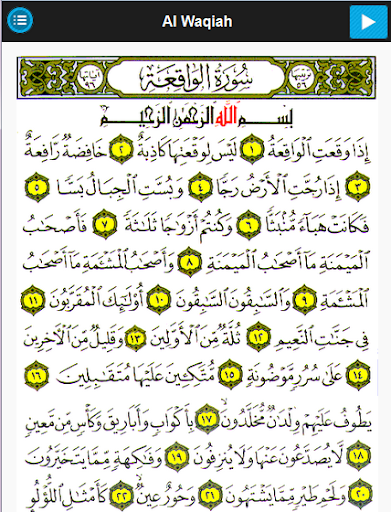 Al Waqiah
ترتيبها ٥٦ سُورَةُ الوَاقِعَةِ آياتها ٩٦
بِسْمِ اللَّهِ الرَّحْمَٰنِ الرَّحِيمِ
إِذَا وَقَعَتِ ٱلْوَاقِعَةُ ١ لَيْسَ لِوَقْعَتِهَا كَاذِبَةٌ ٢ خَافِضَةٌ رَّافِعَةٌ
٣ إِذَا رُجَّتِ ٱلْأَرْضُ رَجًّا ٤ وَبُسَّتِ ٱلْجِبَالُ بَسًّا ٥
فَكَانَتْ هَبَآءً مُّنۢبَثًّا ٦ وَكُنتُمْ أَزْوَٰجًا ثَلَٰثَةً ٧ فَأَصْحَٰبُ
ٱلْمَيْمَنَةِ مَآ أَصْحَٰبُ ٱلْمَيْمَنَةِ ٨ وَأَصْحَٰبُ ٱلْمَشْـَٔمَةِ مَآ أَصْحَٰبُ
ٱلْمَشْـَٔمَةِ ٩ وَٱلسَّٰبِقُونَ ٱلسَّٰبِقُونَ ١٠ أُو۟لَٰٓئِكَ ٱلْمُقَرَّبُونَ ١١
فِى جَنَّٰتِ ٱلنَّعِيمِ ١٢ ثُلَّةٌ مِّنَ ٱلْأَوَّلِينَ ١٣ وَقَلِيلٌ مِّنَ ٱلْءَاخِرِينَ
١٤ عَلَىٰ سُرُرٍ مَّوْضُونَةٍ ١٥ مُّتَّكِـِٔينَ عَلَيْهَا مُتَقَٰبِلِينَ ١٦
يَطُوفُ عَلَيْهِمْ وِلْدَٰنٌ مُّخَلَّدُونَ ١٧ بِأَكْوَابٍ وَأَبَارِيقَ وَكَأْسٍ مِّن مَّعِينٍ
١٨ لَّا يُصَدَّعُونَ عَنْهَا وَلَا يُنزِفُونَ ١٩ وَفَٰكِهَةٍ مِّمَّا يَتَخَيَّرُونَ
٢٠ وَلَحْمِ طَيْرٍ مِّمَّا يَشْتَهُونَ ٢١ وَحُورٌ عِينٌ ٢٢ كَأَمْثَٰلِ ٱللُّؤْلُؤِ